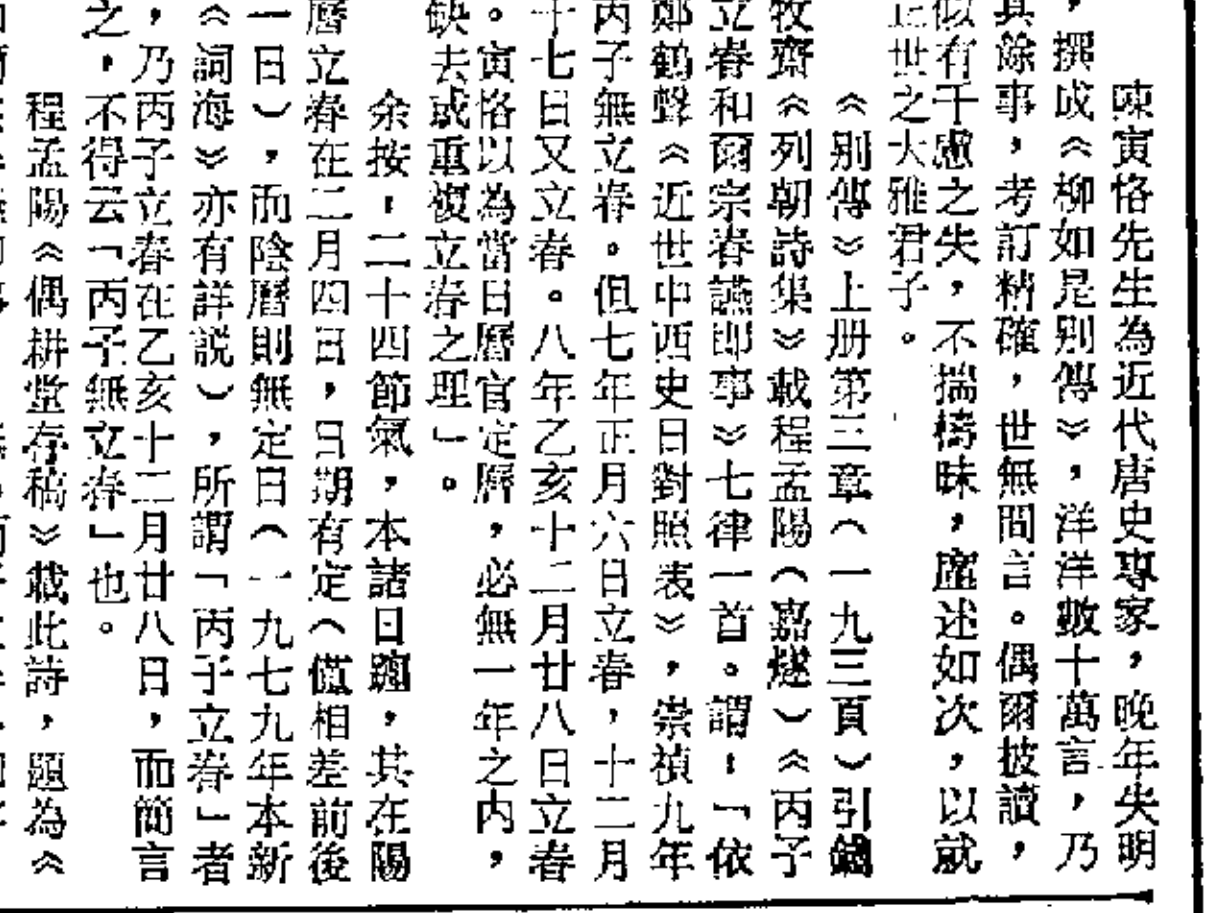 陳寅恪先生為近代唐史專家，晚年失明
，撰成《柳如是別傳》，洋洋數十萬言，乃
其餘事，考訂精確，世無間言。偶爾披讀，
似有千慮之失，不揣檮昧，臚述如次，以就
正世之大雅君子。
《別傳》上册第三章（一九三頁）引錢
牧齋《列朝詩集》載程孟陽（嘉燧）《丙子
立春和爾宗春讌即事》七律一首。謂：「依
鄭鶴聲《近世中西史日對照表》，崇禎九年
丙子無立春。但七年正月六日立春，十二月
十七日又立春。八年乙亥十二月廿八日立春
。寅恪以為當日曆官定曆，必無一年之內，
缺去或重複立春之理」。
余按：二十四節氣，本諸日躔，其在陽
曆立春在二月四日，日期有定（僅相差前後
一日），而陰曆則無定日（一九七九年本新
《詞海》亦有詳説），所謂「丙子立春」者
，乃丙子立春在乙亥十二月廿八日，而簡言
之，不得云「丙子無立春」也。
程孟陽《偶耕堂存稿》載此詩，題為《